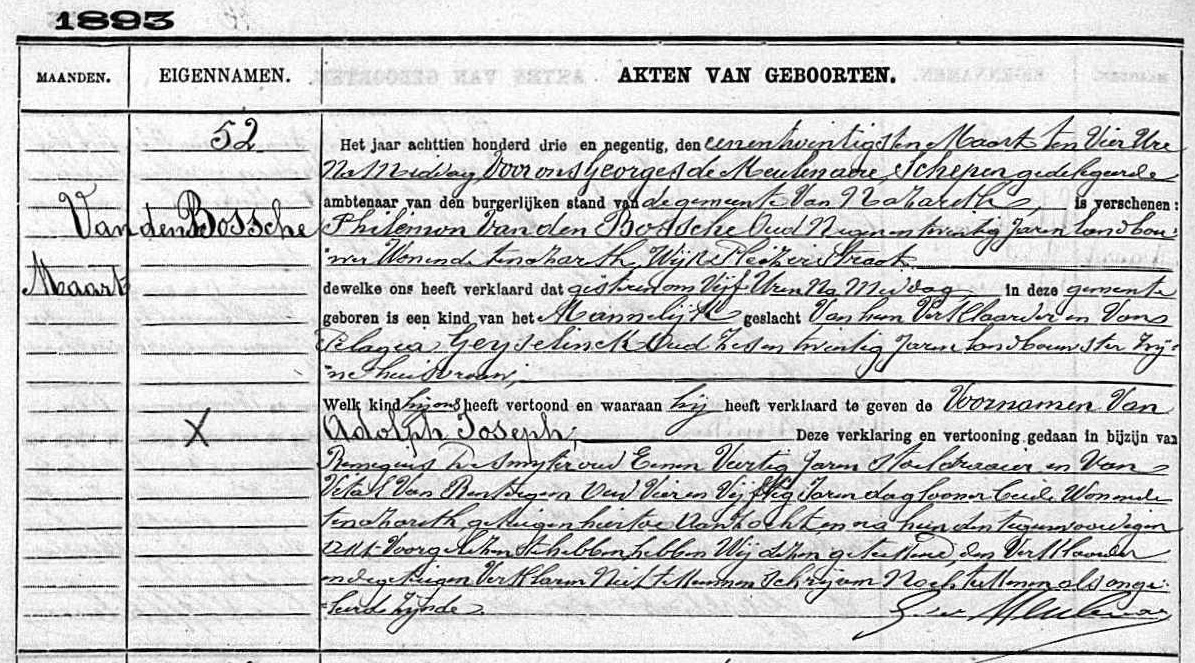 1893
MAANDEN.
EIGENNAMEN.
AKTEN VAN GEBOORTEN.
52
Van den Bossche
Maart
X
Het jaar achttien honderd drie en negentig, den eenentwintigsten Maart ten Vier Ure
Na Middag, Voor ons Georges de Meulenaere Schepen gedelegeerde
ambtenaar van den burgerlijken stand van de gemeente Van Nazareth, is verschenen:
Philemon Van den Bossche Oud Negenentwintig Jaren landbou-
wer Wonende te nazareth, Wijk
dewelke ons heeft verklaard dat gisteren om Vijf Uren Na Middag in deze gemeente
geboren is een kind van het Mannelijk geslacht Van hem Verklaarder en Van
Pelagia Geyselinck Oud Zesentwintig Jaren landbouwster Zij-
ne huisvrouw,
Welk kind hij ons heeft vertoond en waaraan hij heeft verklaard te geven de Voornamen Van
Adolph Joseph, Deze verklaring en vertooning gedaan in bijzijn van
Remegius De Smyter oud Eenen Veertig Jaren stoeldraaier en Van
Vitael Van Oud Vier en Vijftig Jaren daglooner beide Wonende
te nazareth getuigen hiertoe Aanzocht, en na hun den tegenwoordigen
akt Voorgelezen te hebben hebben Wij dezen geteekend, den Verklaarder
en de getuigen Verklaren Niet te kunnen schrijven Noch teekenen als onge-
leerd zijnde.
G. de Meulenaere